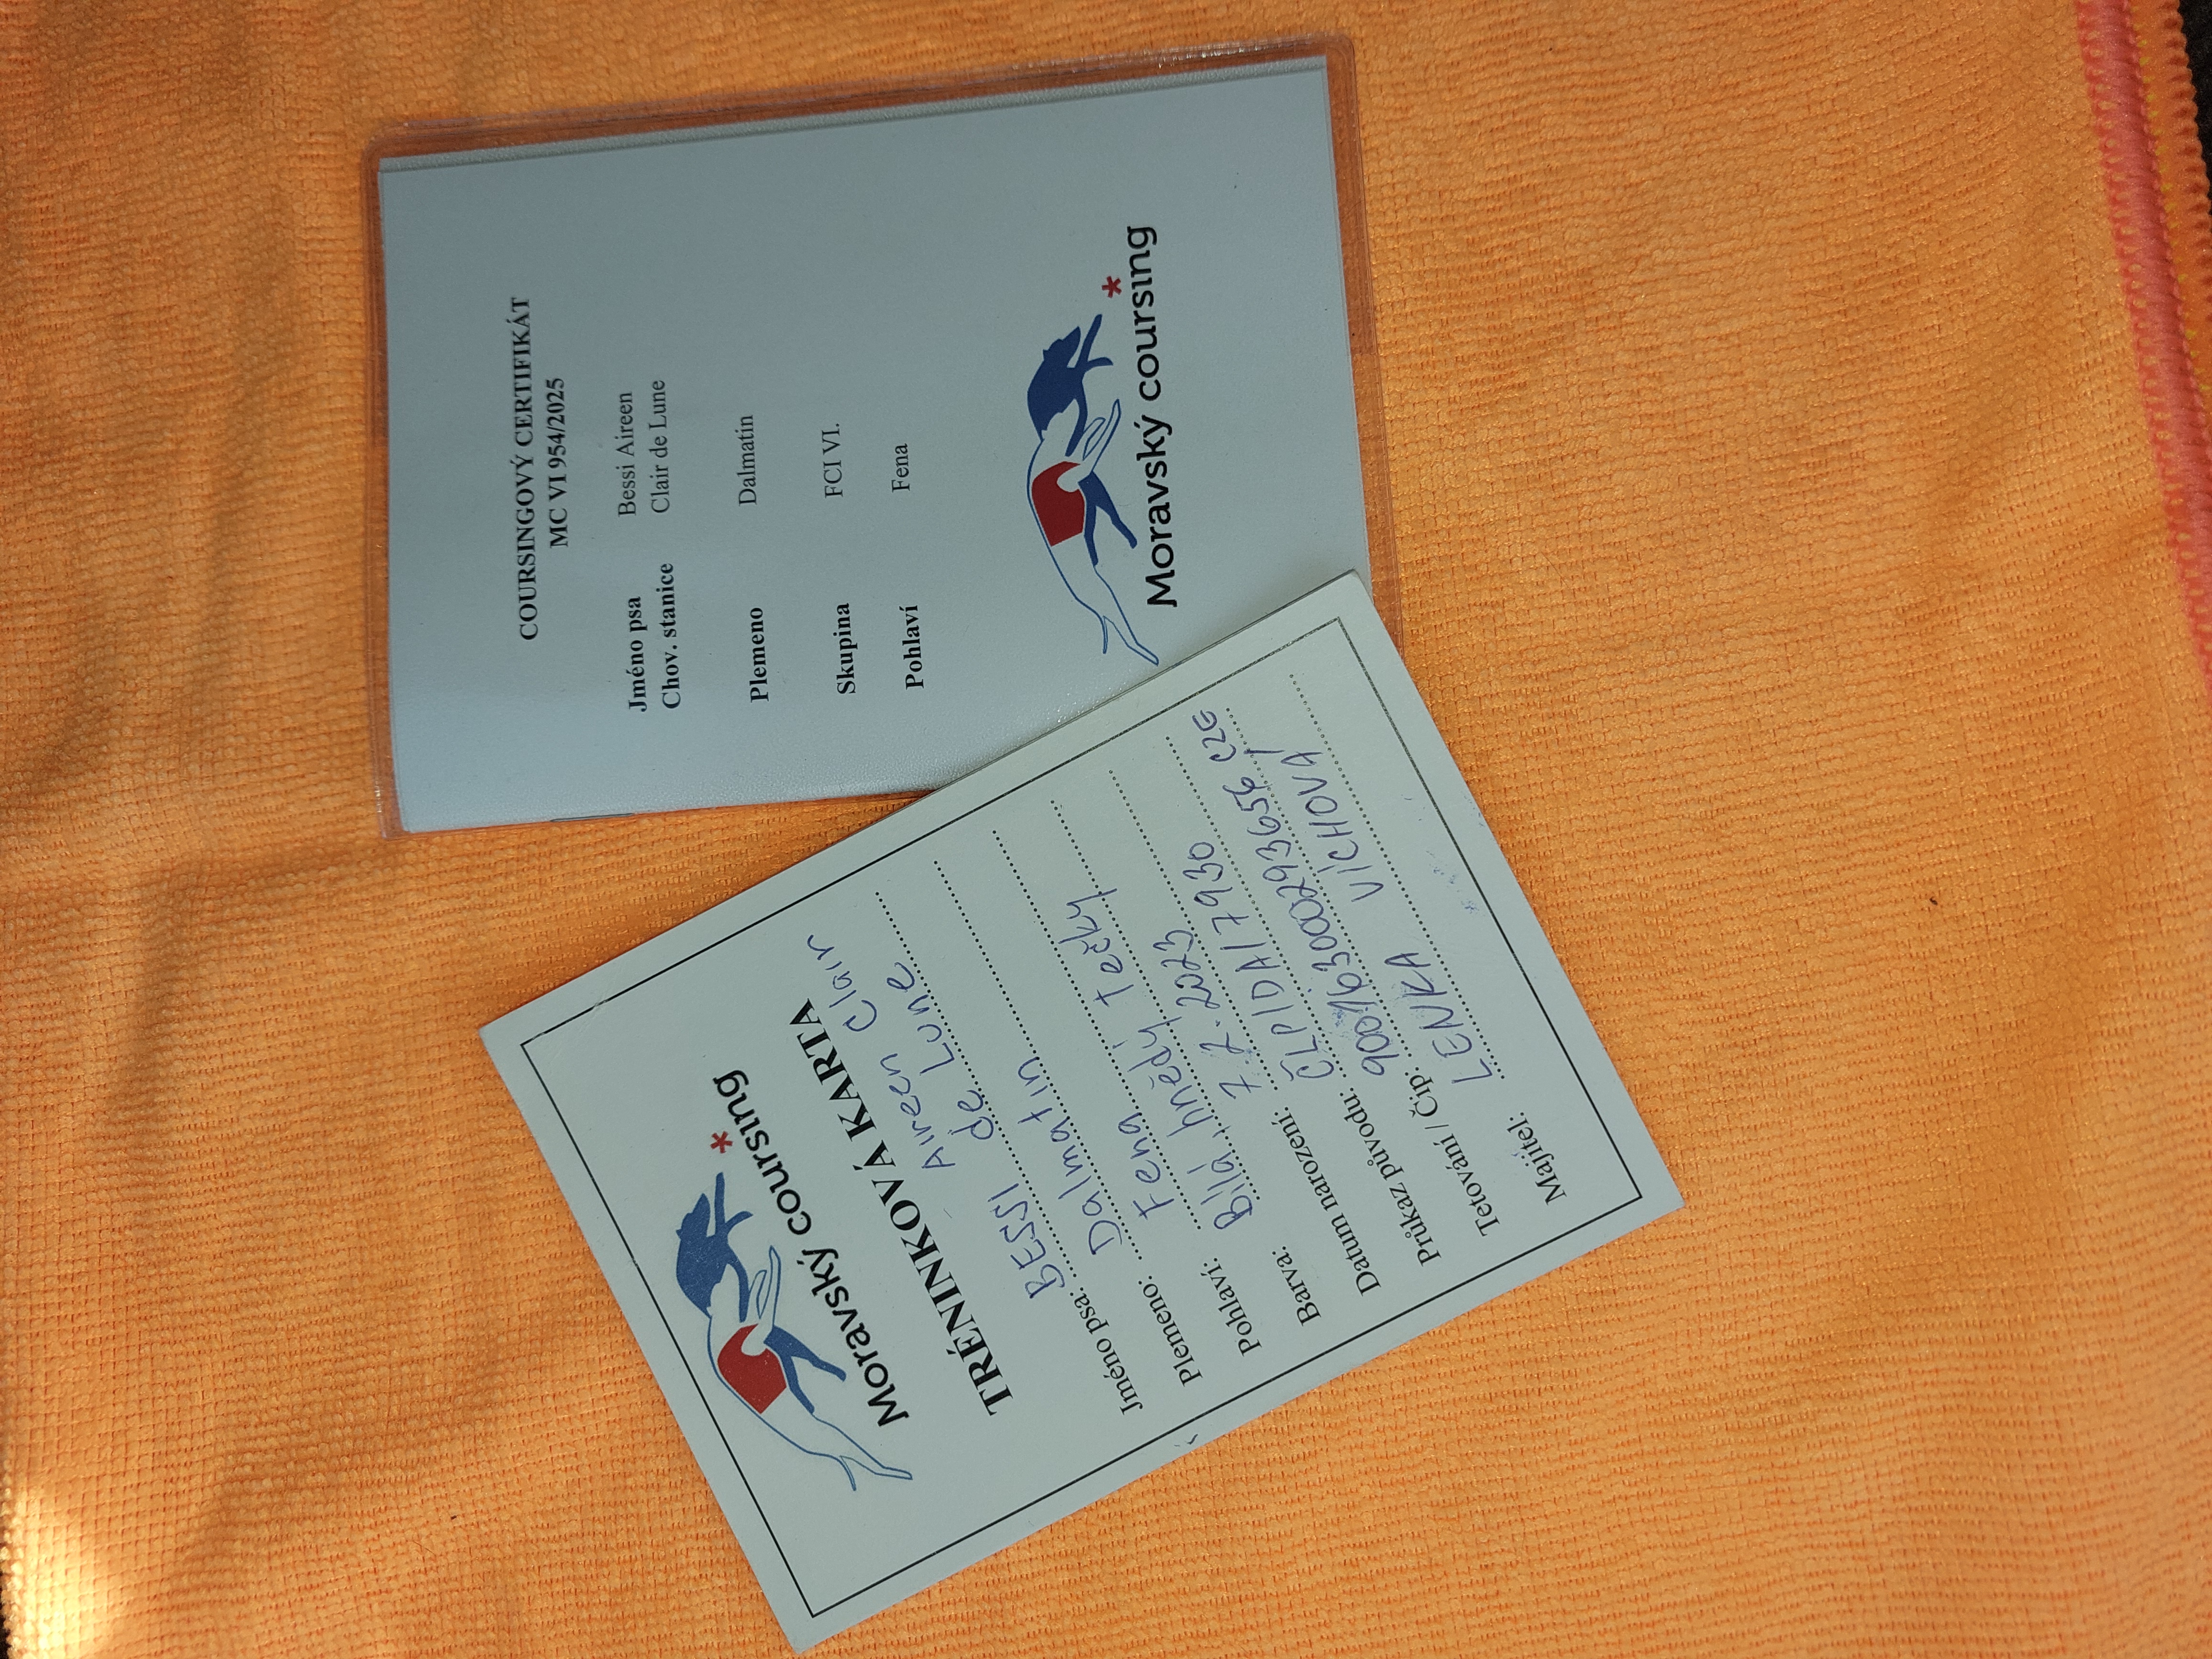 COURSINGOVÝ CERTIFIKÁT
MC VI 954/2025
Jméno psa Bessi Aireen
Chov. stanice Clair de Lune
Plemeno Dalmatin
Skupina FCI VI.
Pohlaví Fena
Moravský coursing
Moravský coursing
TRÉNINKOVÁ KARTA
Jméno psa: BESSI Aireen Clair
de Lune
Plemeno: Dalmatin
Pohlaví: Fena
Barva: Bílá, hnědý tečky
Datum narození: 7. 2. 2023
Průkaz původu: ČLP/DA/17930
Tetování / Čip:
Majitel: LENKA VÍCHOVÁ